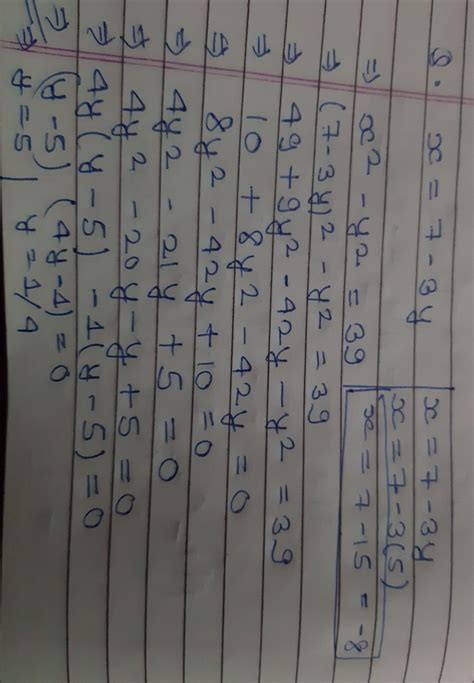 Q. x = 7 - 3y
⇒ x² - y² = 39
⇒ (7-3y)² - y² = 39
⇒ 49 + 9y² - 42y - y² = 39
⇒ 10 + 8y² - 42y = 0
⇒ 8y² - 42y + 10 = 0
⇒ 4y² - 21y + 5 = 0
⇒ 4y² - 20y - y + 5 = 0
⇒ 4y(y-5) - 1(y-5) = 0
⇒ (y-5) (4y-1) = 0
⇒ y = 5 | y = 1/4
x = 7 - 3y
x = 7 - 3(5)
x = 7 - 15 = -8